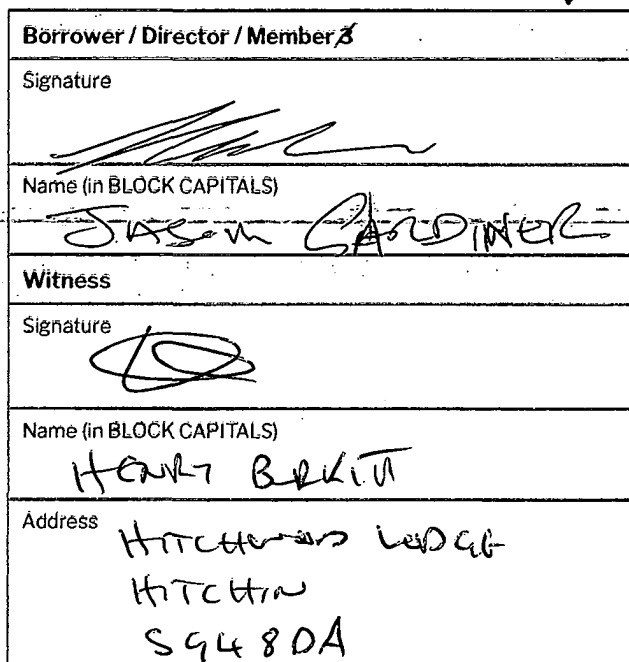 Borrower / Director / Member 3
Signature
Name (in BLOCK CAPITALS)
JASON GARDINER
Witness
Signature
Name (in BLOCK CAPITALS)
HENRY BIRKITT
Address
HITCHWOOD LODGE
HITCHIN
SG4 8DA